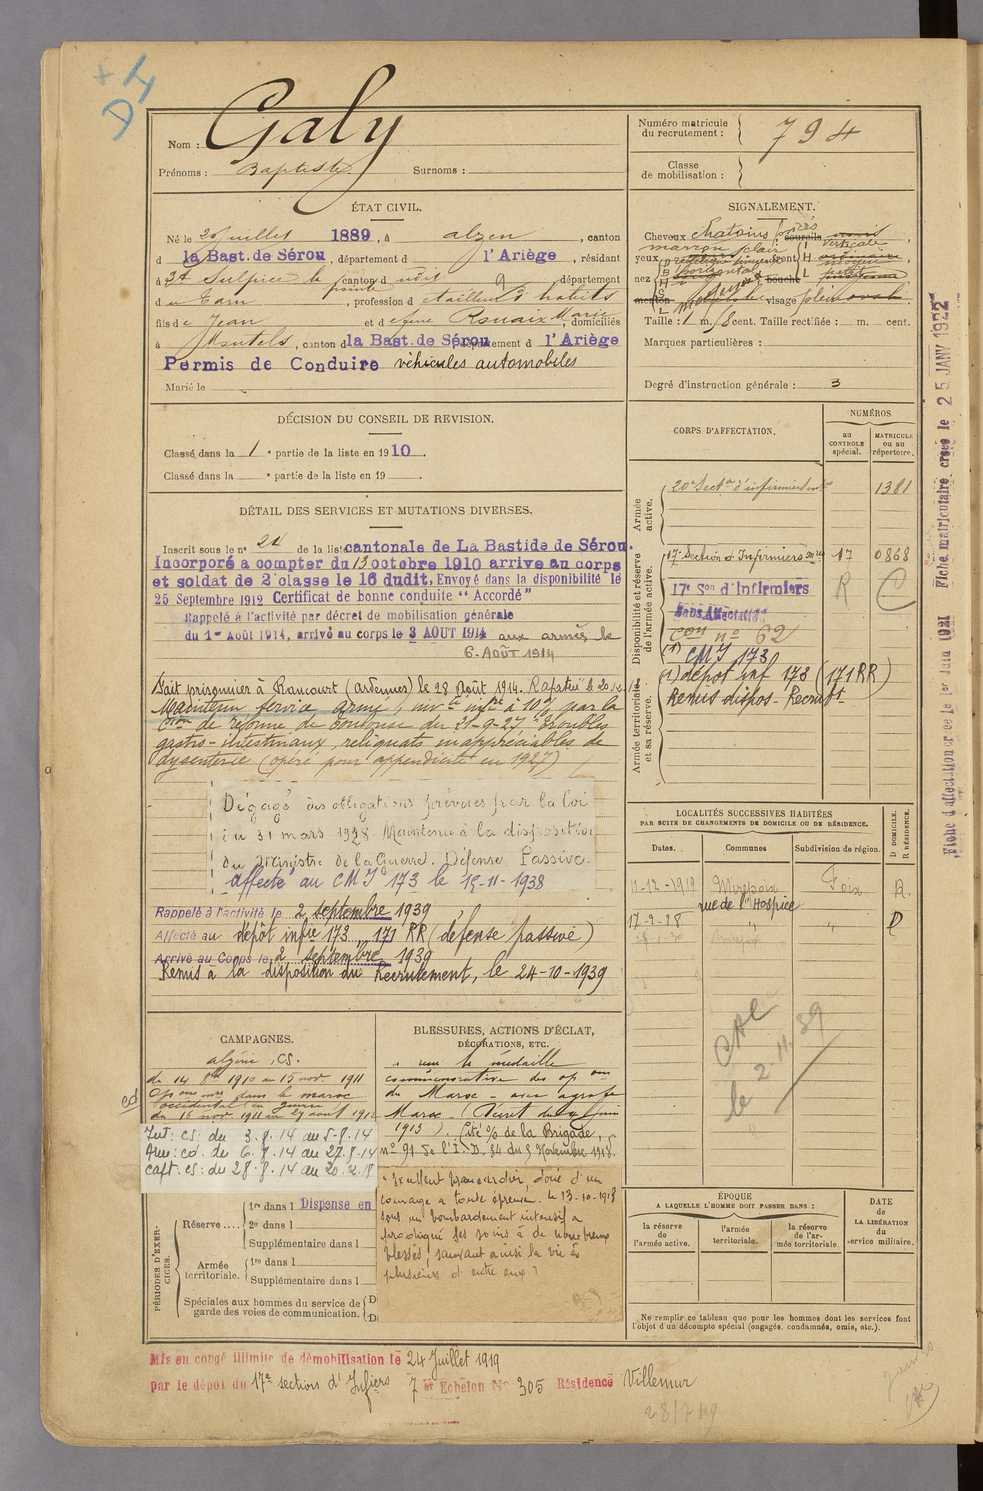 +
D 4
Nom : Galy
Prénoms : Baptiste Surnoms :
Numéro matricule
du recrutement : 794
Classe
de mobilisation :
ÉTAT CIVIL.
Né le juillet 1889, à alzen, canton
d la Bast. de Sérou, département d l'Ariège, résidant
à St Sulpice la pointe canton dudit département
du Tarn, profession de tailleur d'habits
fils de Jean et de feue Rouaix Marie, domiciliés
à Montels, canton d la Bast. de Sérou département d l'Ariège
Permis de Conduire véhicules automobiles
Marié le
SIGNALEMENT.
Cheveux chatains foncés sourcils
yeux marron clair front verticale
nez menton bouche visage plein ovale
Taille : 1 m. 58 cent. Taille rectifiée : m. cent.
Marques particulières :
Degré d'instruction générale : 3
DÉCISION DU CONSEIL DE REVISION.
Classé dans la 1e partie de la liste en 1910.
Classé dans la e partie de la liste en 19
DÉTAIL DES SERVICES ET MUTATIONS DIVERSES.
Inscrit sous le n° 24 de la liste cantonale de La Bastide de Sérou.
Incorporé a compter du 13 octobre 1910 arrive au corps
et soldat de 2e classe le 16 dudit, Envoyé dans la disponibilité le
25 Septembre 1912 Certificat de bonne conduite "Accordé"
Rappelé à l'activité par décret de mobilisation générale
du 1er Août 1914, arrivé au corps le 3 AOUT 1914 aux armées le
6. AOÛT 1914
Fait prisonnier à Raucourt (ardennes) le 28 Août 1914. Rapatrié le 20.12.18
Maintenu service armé, inv. té inf re à 10% par la
C ion de réforme de Toulouse du 21-9-27 "troubles
gastro-intestinaux, reliquats inappréciables de
dysenterie (opéré pour appendicite en 1927)
Dégagé des obligations prévues par la loi
du 31 mars 1928. Maintenu à la disposition
du Ministre de la Guerre. Défense Passive.
affecté au CMI 173 le 15-11-1938
Rappelé à l'activité le 2 septembre 1939
Affecté au dépôt infie 173, 171 RR (défense passive)
Arrivé au Corps le 2 septembre 1939
Remis à la disposition du Recrutement, le 24-10-1939
CORPS D'AFFECTATION.
NUMÉROS
au
CONTROLE
spécial.
MATRICULE
ou au
répertoire.
Armée
active.
20e Secton d'infirmiers mres 1381
Disponibilité et réserve
de l'armée active.
17e Section d'Infirmiers mres 17 0868
17e Son d'Infirmiers R C
Sans Affectation
con n° 62
(1) CMI 173
Armée territoriale
et sa réserve.
(1) dépot inf 173 (171 RR)
Remis dispos- Recrutt
LOCALITÉS SUCCESSIVES HABITÉES
PAR SUITE DE CHANGEMENTS DE DOMICILE OU DE RÉSIDENCE.
Dates. Communes Subdivision de région. D DOMICILE. R RÉSIDENCE.
11-12-1919 Mirepoix Foix R.
rue de l'Hospice
17-2-28 " " D
CAC
le 2.11.39
CAMPAGNES.
algérie, CS.
du 14 8bre 1910 au 15 nov. 1911
Opons mres dans le maroc
occidental en guerre
du 16 nov 1911 au 29 aout 1912
cd
Int: CS: du 3.8.14 au 5.8.14
Arm: cd. du 6.8.14 au 27.8.14
Capt: CS: du 28.8.14 au 20.12.18
BLESSURES, ACTIONS D'ÉCLAT,
DÉCORATIONS, ETC.
a reçu la médaille
commémorative des opons
du Maroc - avec agrafe
Maroc. (Décret du juin
1913). Cité % de la Brigade,
n° 91 de l'I.D. 34 du 5 Novembre 1918.
" Excellent brancardier, doué d'un
courage a toute épreuve. le 13-10-1918
sous un bombardement intensif a
prodigué ses soins à de nombreux
blessés, sauvant ainsi la vie à
plusieurs d'entre eux "
PÉRIODES D'EXERCICES.
Réserve....
1re dans l Dispense en
2e dans l
Supplémentaire dans l
Armée
territoriale.
1re dans l
Supplémentaire dans l
Spéciales aux hommes du service de
garde des voies de communication.
ÉPOQUE
A LAQUELLE L'HOMME DOIT PASSER DANS :
la réserve
de
l'armée active.
l'armée
territoriale.
la réserve
de l'ar-
mée territoriale.
DATE
de
LA LIBÉRATION
du
service militaire.
Ne remplir ce tableau que pour les hommes dont les services font
l'objet d'un décompte spécial (engagés, condamnés, omis, etc.).
Mis en congé illimité de démobilisation le 24 Juillet 1919
par le dépôt du 17e section d'Infiers 7 er Echelon N° 305 Résidence Villemur
28/7/19
Fiche d'affectation créée le 1er Juin 1921 Fiche matriculaire créée le 25 JANV 1922